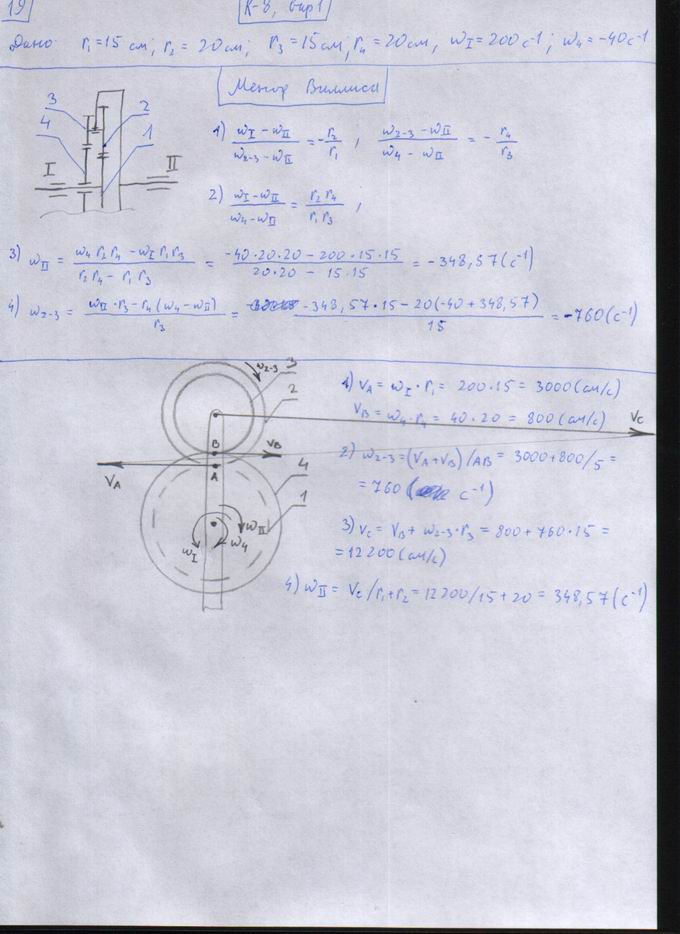 19
К-8, вар 1
Дано: r₁=15 см; r₂ = 20 см; r₃ = 15 см; r₄ = 20 см; ω_I = 200 с⁻¹; ω₄ = -40 с⁻¹
Метод Виллиса
3 2
4 1
I II
1) (ω_I - ω_II)/(ω₂₋₃ - ω_II) = -r₂/r₁ ; (ω₂₋₃ - ω_II)/(ω₄ - ω_II) = -r₄/r₃
2) (ω_I - ω_II)/(ω₄ - ω_II) = r₂ r₄/r₁ r₃ ;
3) ω_II = (ω₄ r₂ r₄ - ω_I r₁ r₃)/(r₂ r₄ - r₁ r₃) = (-40·20·20 - 200·15·15)/(20·20 - 15·15) = -348,57 (с⁻¹)
4) ω₂₋₃ = (ω_II·r₃ - r₄(ω₄ - ω_II))/r₃ = (-348,57·15 - 20(-40 + 348,57))/15 = -760 (с⁻¹)
ω₂₋₃ 3
2
V_C
B V_B
A
V_A
4
1
ω_I ω₄ ω_II
1) V_A = ω_I · r₁ = 200·15 = 3000 (см/с)
V_B = ω₄·r₄ = 40·20 = 800 (см/с)
2) ω₂₋₃ = (V_A + V_B)/AB = 3000+800/5 =
= 760 ( с⁻¹)
3) V_C = V_B + ω₂₋₃·r₃ = 800 + 760·15 =
= 12200 (см/с)
4) ω_II = V_C/r₁+r₂ = 12200/15+20 = 348,57 (с⁻¹)